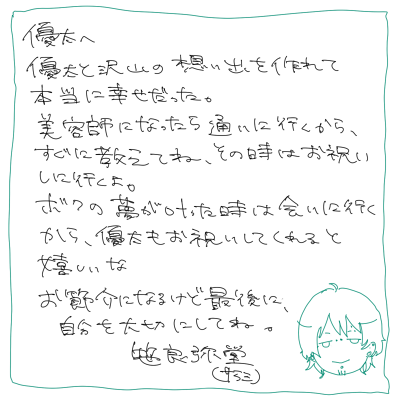 優太へ
優太と沢山の想い出を作れて
本当に幸せだった。
美容師になったら通いに行くから、
すぐに教えてね、その時はお祝い
しに行くよ。
ボクの夢が叶った時は会いに行く
から、優太もお祝いしてくれると
嬉しいな
お節介になるけど最後に、
自分を大切にしてね。
良弥堂